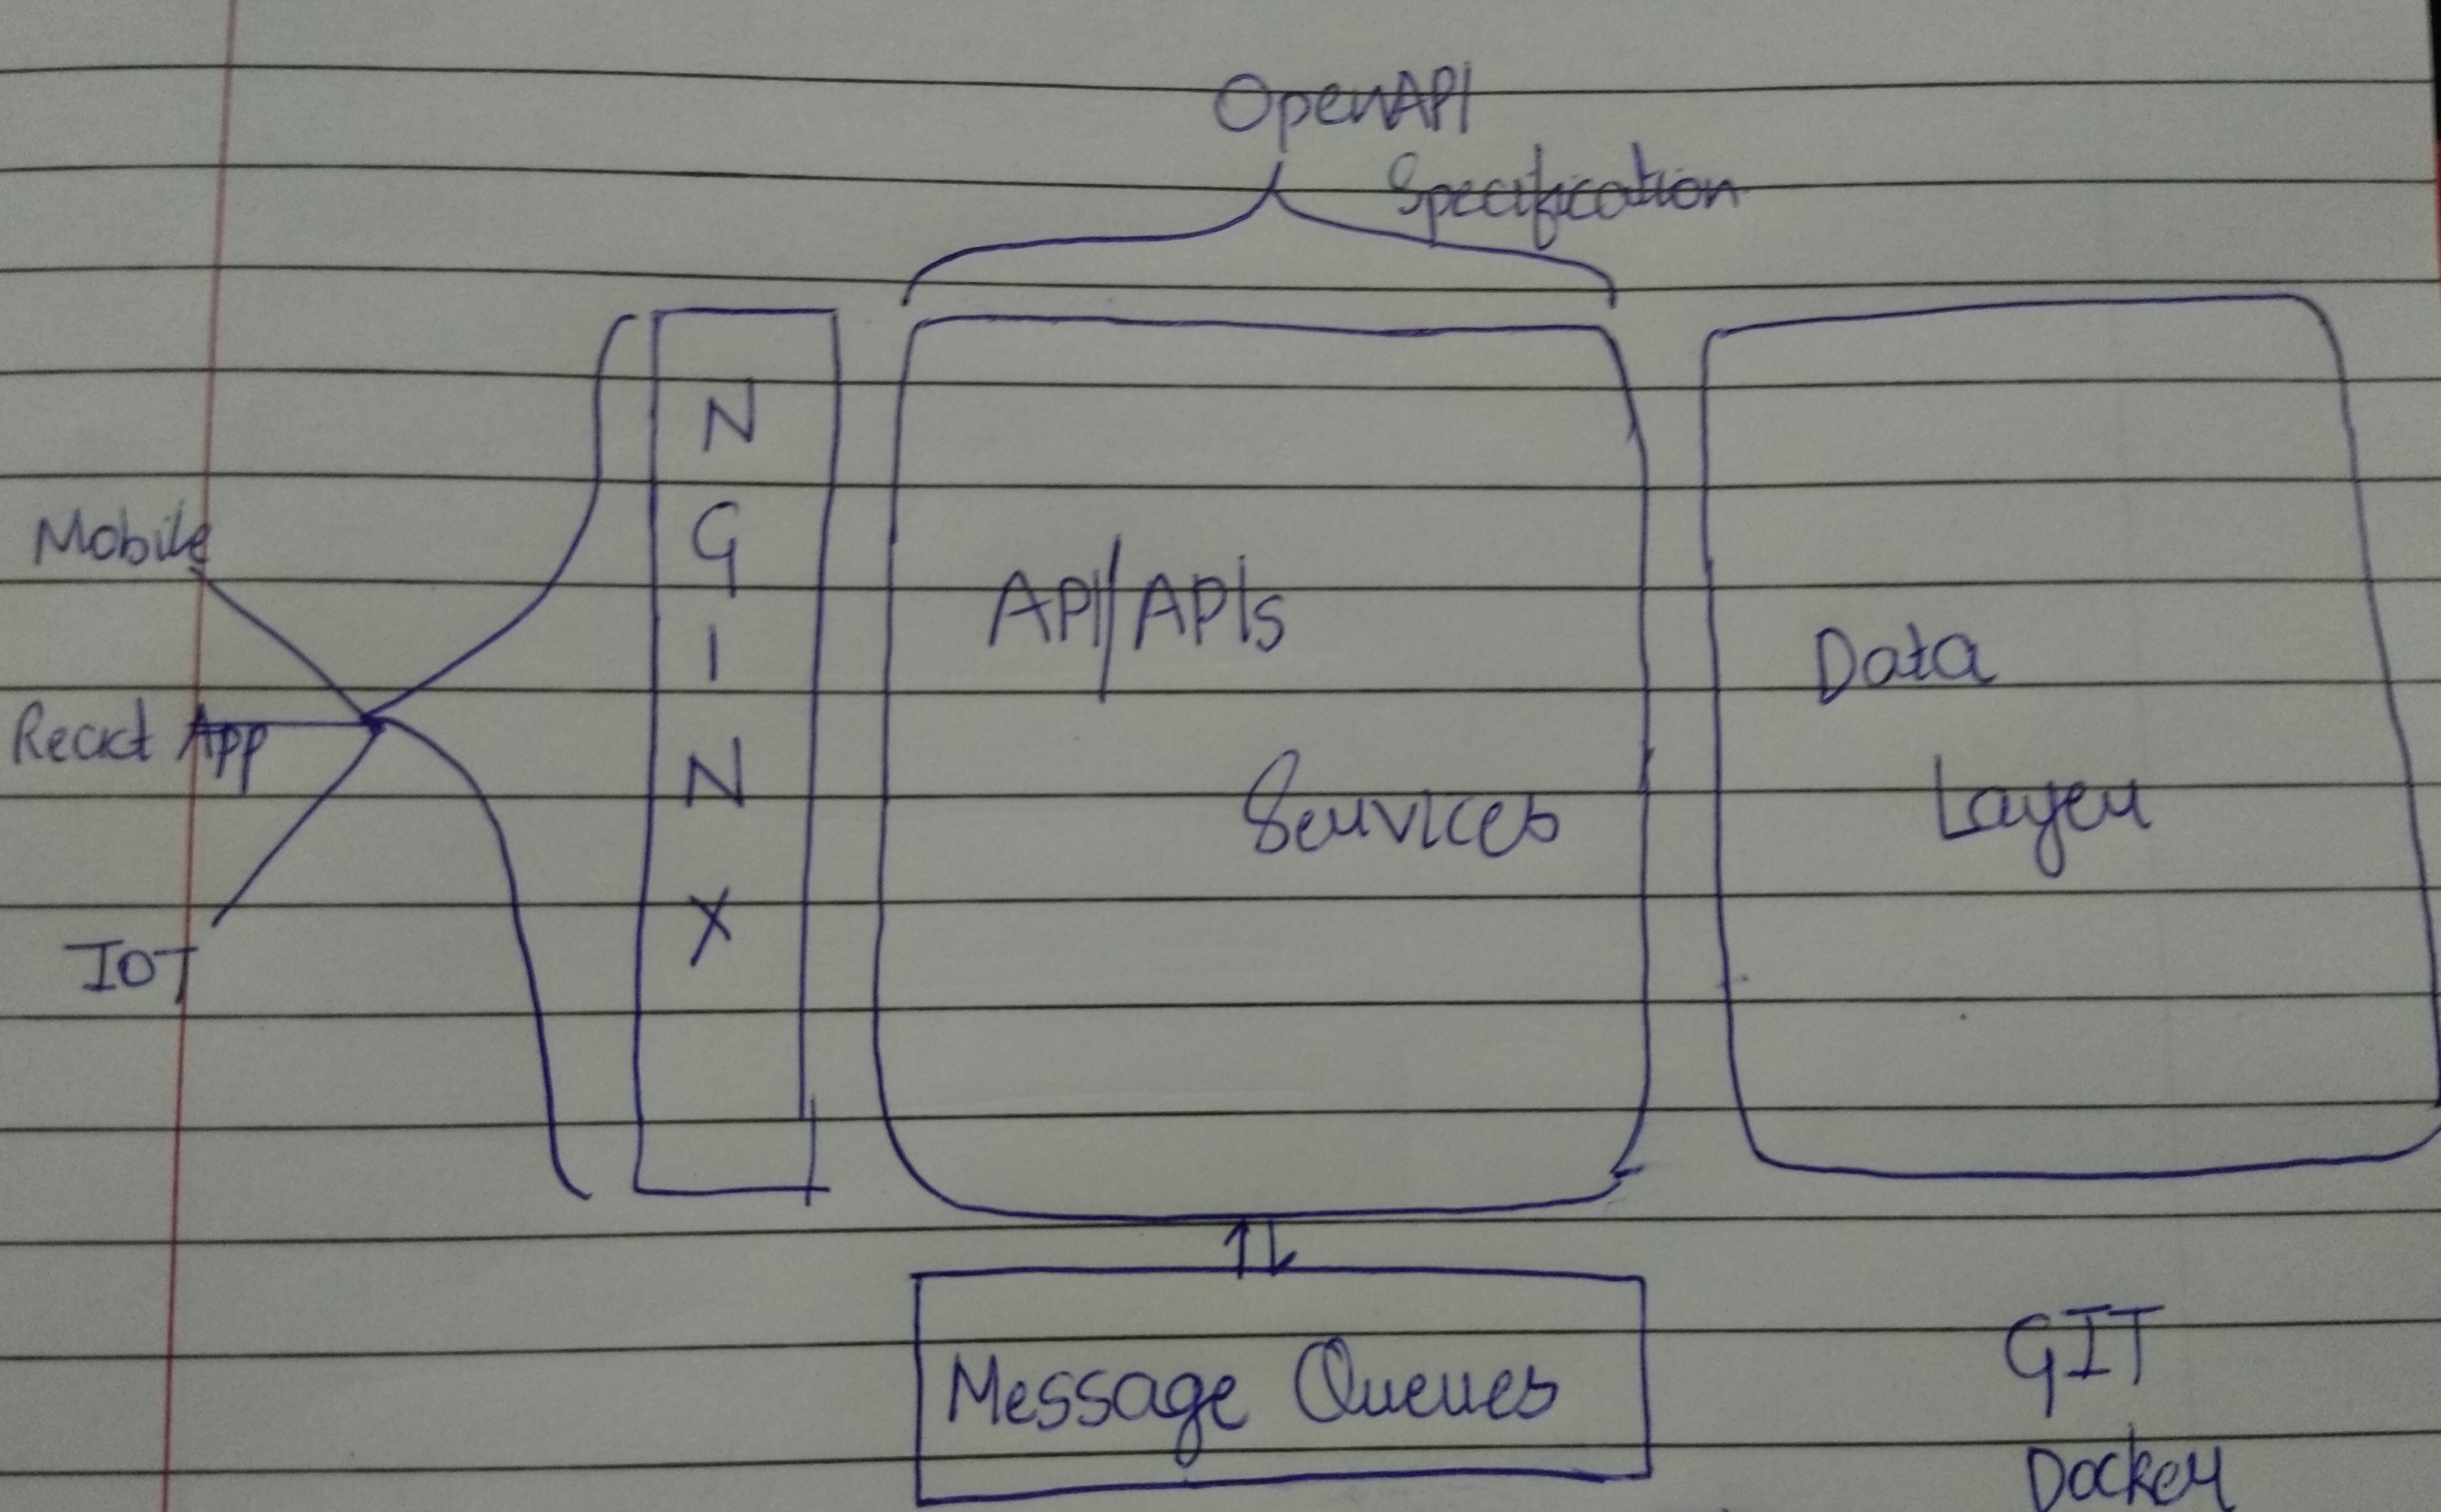 OpenAPI
Specification
NGINX
Mobile
React App
IOT
API/APIs
Services
Data
Layer
Message Queues
GIT
Docker